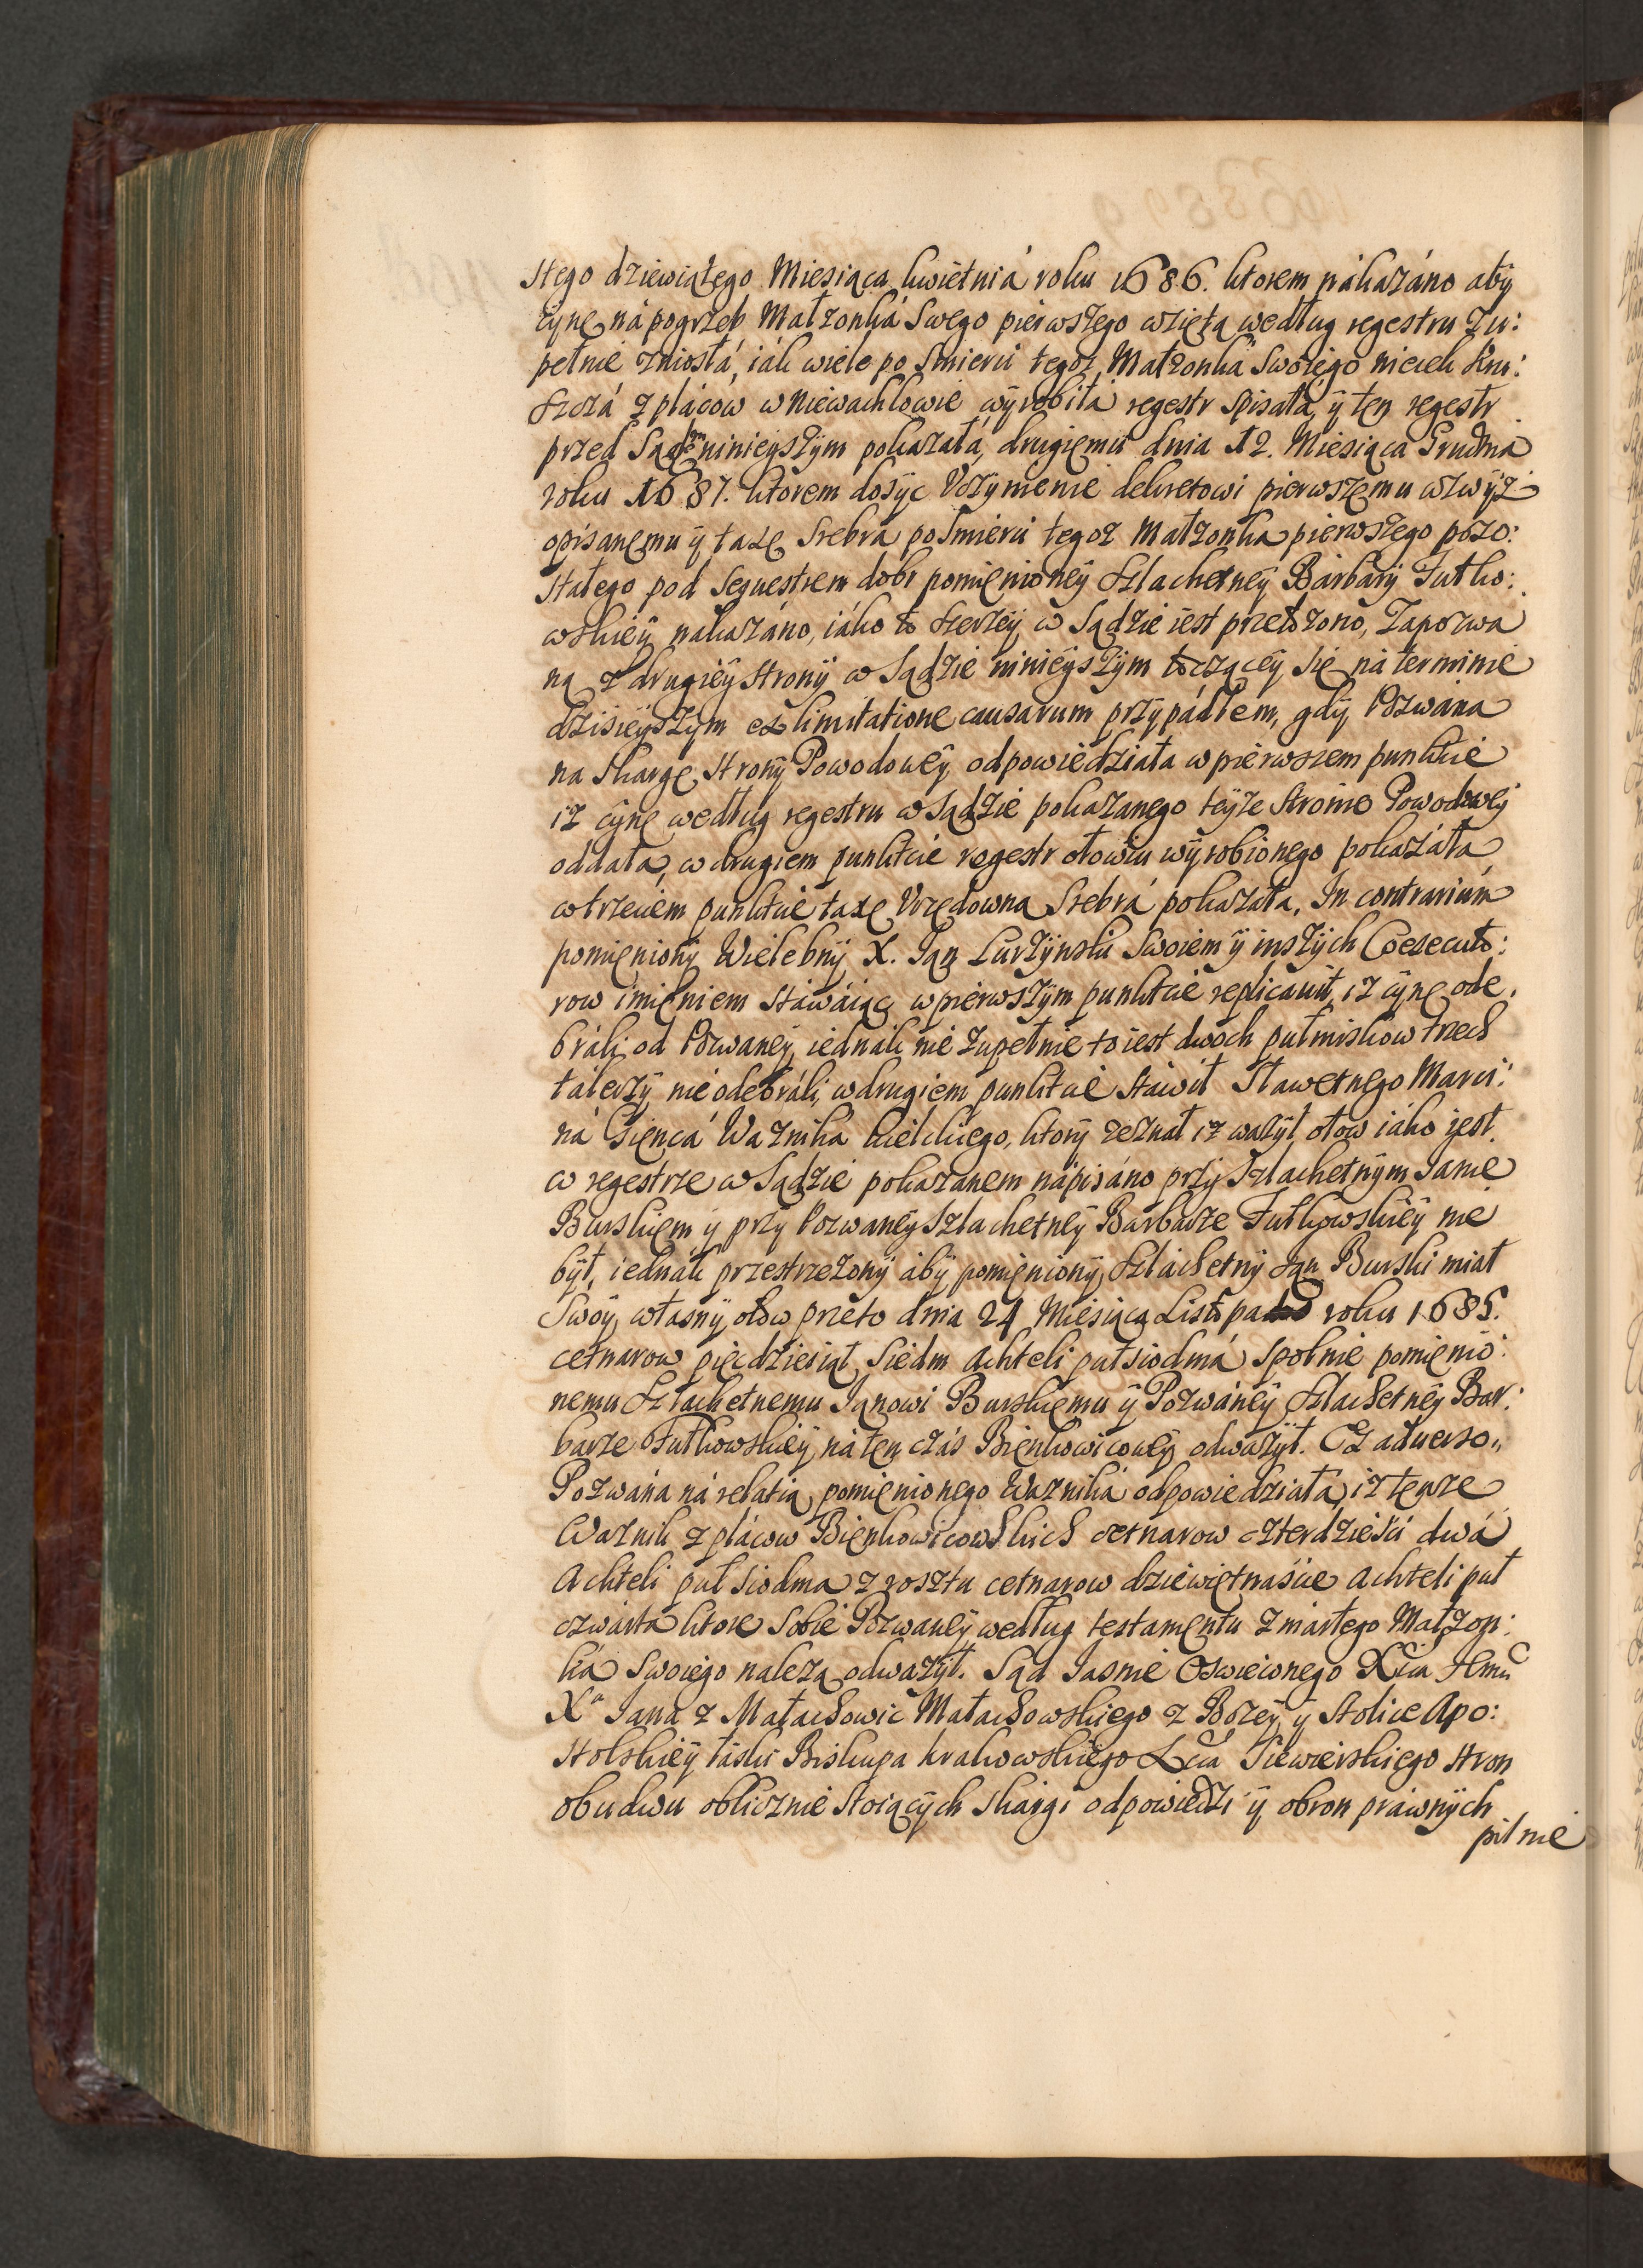 stego dziewiątego Miesiąca kwietniá roku 1686. ktorem nákazáno aby
cynę ná pogrzeb Małżonká Swego pierwszego wziętą według regestru zu:
pełnie zniosłá, iák wiele po Smierci tegoż Małżonká Swoiego niecek kru:
szczá z plácow w Niewachlowie wyrobiłá regestr Spisáłá, y ten regestr
przed Sądem ninieyszym pokazáłá, drugiemu dnia 12. Miesiąca Grudniá
roku 1687. ktorem dosyc Vczynienie dekretowi pierwszemu wzwyż
opisanemu y taxę Srebrá po Smierci tegoż Małżonka pierwszego pozo:
stałego pod Sequestrem dobr pomienioney Szlachetney Bárbáry Futko:
wskiey nakazáno, iáko to szerzey w Sądzie iest przełożono, Zapozwa
ną z drugiey strony w Sądzie ninieyszym toczącey się ná terminie
dzisieyszym ex limitatione causarum przypádłem, gdy Pozwána
na Skargę strony Powodowey odpowiedziała w pierwszem punkcie
iż cynę według regestru w Sądzie pokazanego teyże Stronie Powodowey
oddała, w drugiem punktcie regestr ołowiu wyrobionego pokazáła
w trzeciem punktcie taxę Vrzędowną Srebrá pokazáła. In contrarium
pomieniony Wielebny X. Jan Kurzynski Swoiem y inszych Coexecuto:
row imieniem stáwáiąc w pierwszym punktcie replicauit, iż cynę ode
bráli od Pozwaney, iednak nie zupełnie to iest dwoch pułmiskow trzech
tálerzy nie odebráli, w drugiem punktcie stáwił Sławetnego Marci:
ná Sięncá Ważniká kielckiego, ktory zeznał iż ważył ołow iáko iest
w regestrze w Sądzie pokazanem nápisáno przy Szlachetnym Janie
Burskiem y przy Pozwaney Szlachetney Barbarze Futkowskiey nie
był, iednák przestrzeżony áby pomieniony Szlachetny Jan Burski miał
Swoy własny ołow przeto dnia 24 Miesiąca Listopada roku 1685.
cetnarow pięcdziesiąt Siedm Achteli puł siodmá Spolnie pomienio:
nemu Szlachetnemu Janowi Burskiemu y Pozwáney Szlachetney Bar:
barze Futkowskiey, ná ten czás Bienkowicowey odważył. Ex aduerso
Pozwána ná relatią pomienionego Ważniká odpowiedziała, iż tenże
Ważnik z plácow Bienkowicowskich cetnarow czterdziesci dwá
Achteli puł siodma z rosztu cetnarow dziewiętnaście Achteli puł
czwartá ktore Sobie Pozwaney według testamentu zmarłego Małżon:
ká Swoiego należą odważył. Sąd Jasnie Oswieconego Xcia Jmci
Xa Jana z Małachowic Małachowskiego z Bożey y Stolice Apo:
stolskiey łáski Biskupa krakowskiego Xcia Siewierskiego stron
obudwu oblicznie stoiących skargi odpowiedzi y obron práwnych
pilnie